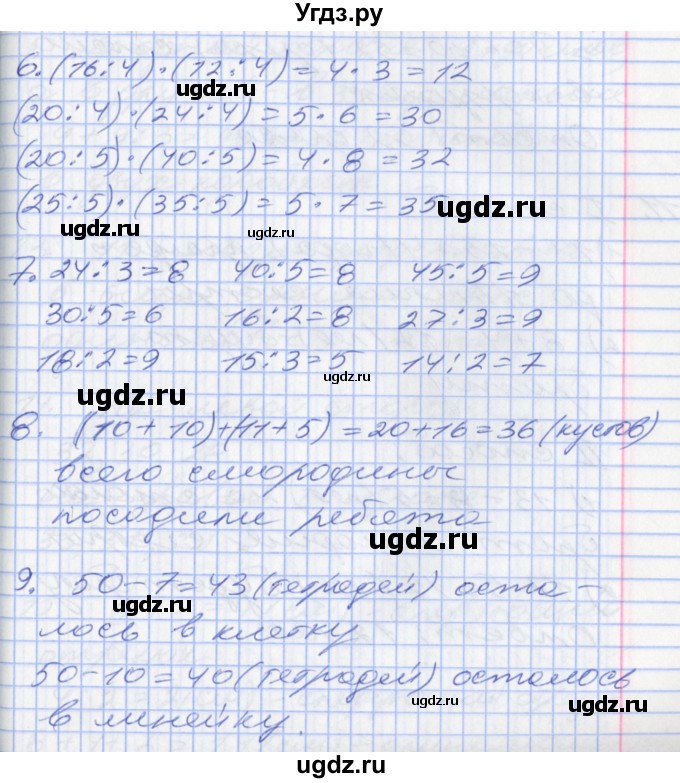 Угдз.ру
6. (16:4)·(12:4)=4·3=12
ugdz.ru
(20:4)·(24:4)=5·6=30
(20:5)·(40:5)=4·8=32
(25:5)·(35:5)=5·7=35
ugdz.ru
ugdz.ru ugdz.ru
7. 24:3=8 40:5=8 45:5=9
30:5=6 16:2=8 27:3=9
18:2=9 15:3=5 14:2=7
ugdz.ru
ugdz.ru
8. (10+10)+(11+5)=20+16=36 (кустов)
всего смородины
посадили ребята
ugdz.ru
9. 50-7=43 (тетрадей) оста-
ugdz.ru
лось в клетку
50-10=40 (тетрадей) осталось
ugdz.ru
в линейку.
ugdz.ru